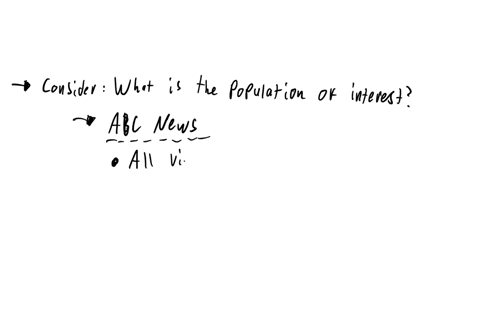 → Consider: What is the Population of interest?
→ ABC News
• All vi